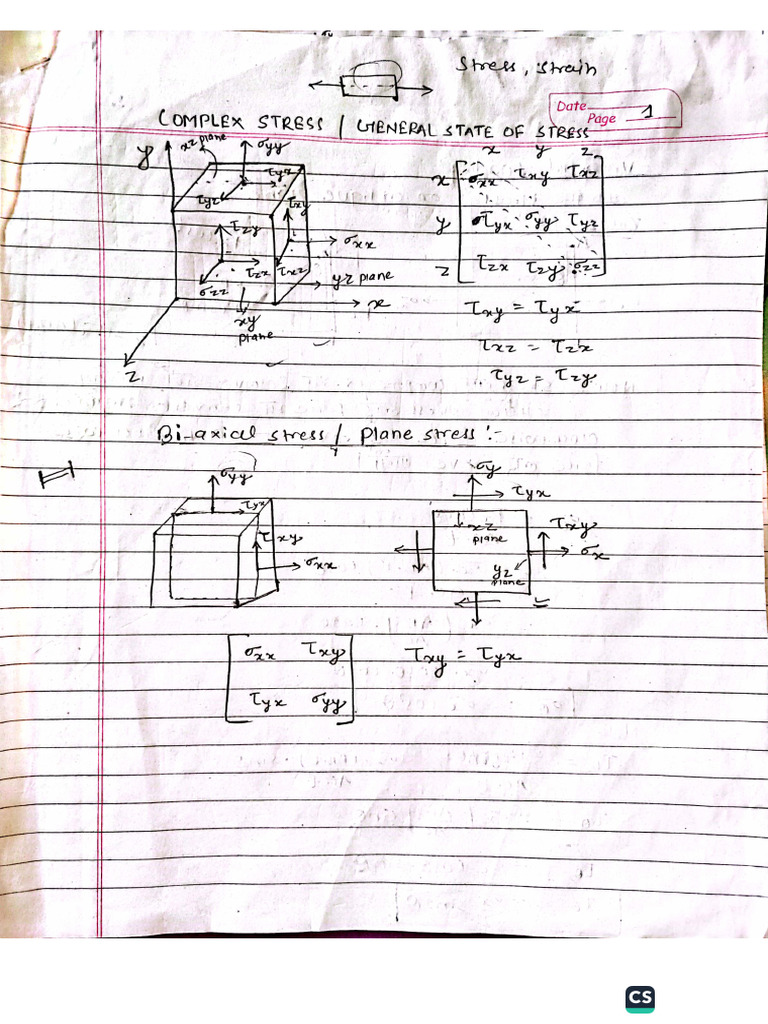 Stress, Strain
Date
Page 1
COMPLEX STRESS / GENERAL STATE OF STRESS
x y z
y xz plane σyy
τyx
τyz
τxy
τzy
σxx
τzx τxz
σzz
yz plane
xy plane
x
z
x σxx τxy τxz
y τyx σyy τyz
z τzx τzy σzz
τxy = τyx
τxz = τzx
τyz = τzy
Bi-axial stress / Plane stress :-
σyy
τyx
τxy
σxx
σy
τyx
xz plane
τxy
σx
yz plane
σxx τxy
τyx σyy
τxy = τyx
CS